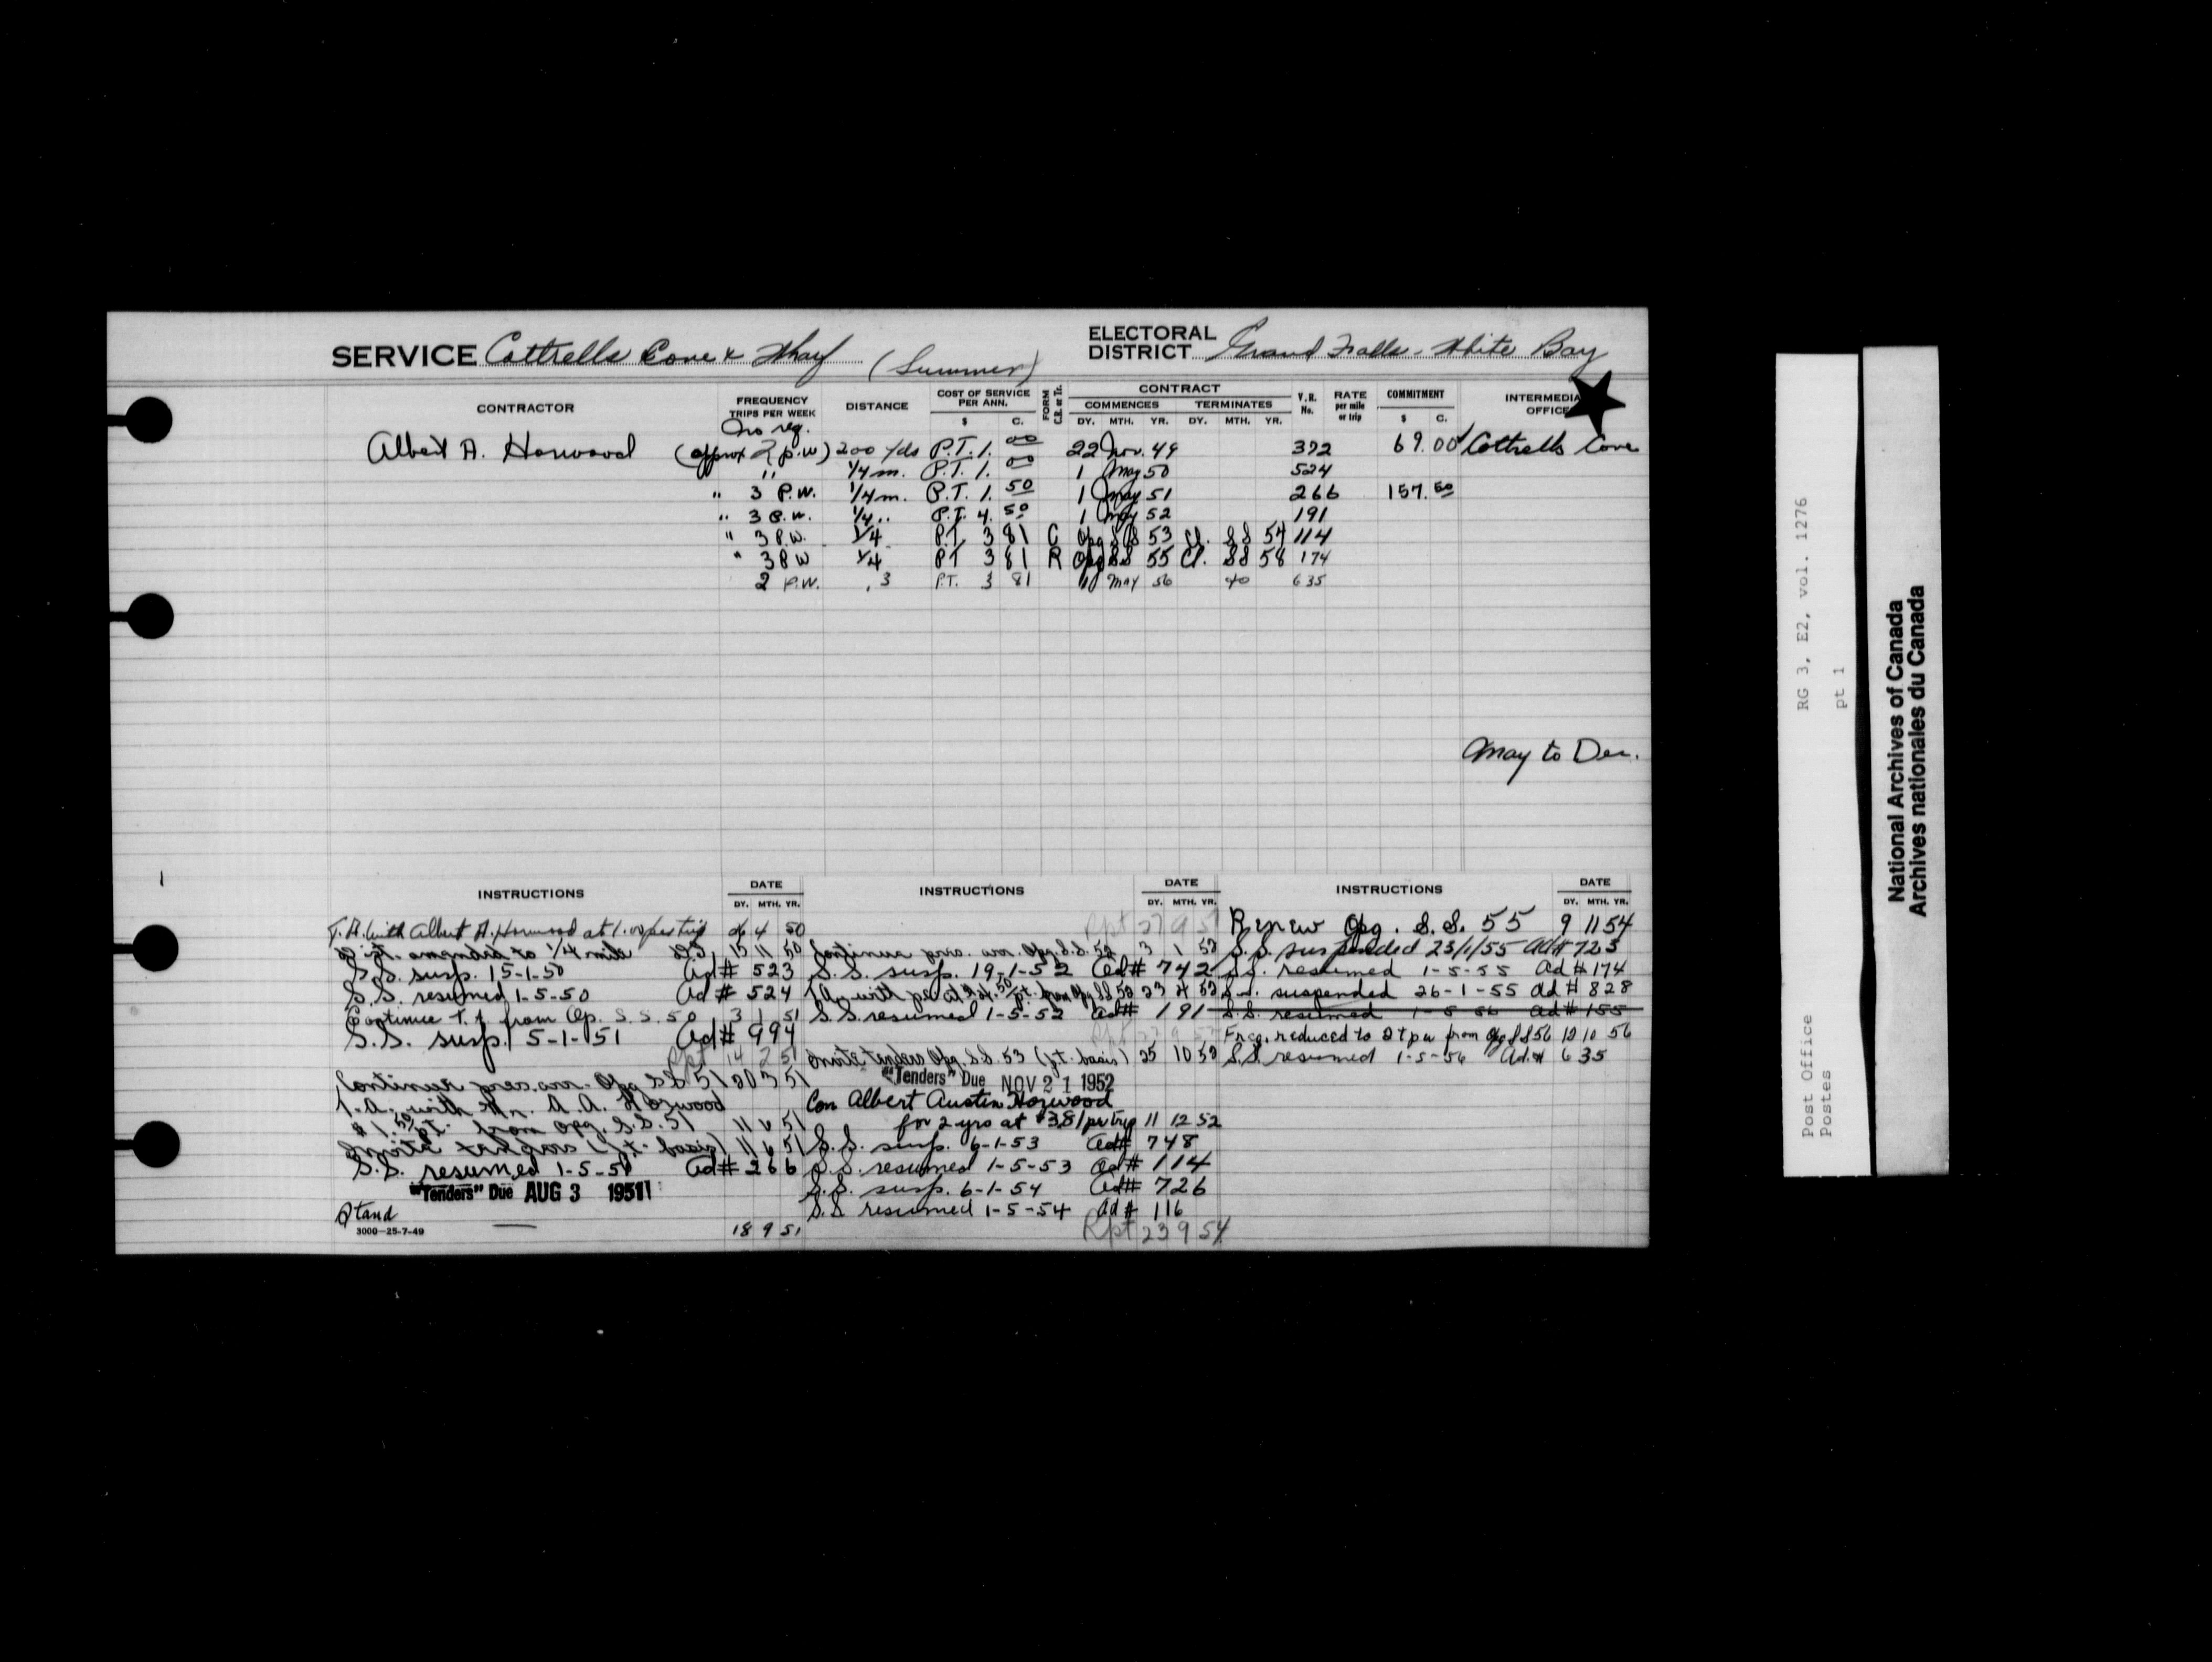 SERVICE Cottrells Cove & Wharf (Summer) ELECTORAL DISTRICT Grand Falls - White Bay
CONTRACTOR FREQUENCY TRIPS PER WEEK DISTANCE COST OF SERVICE PER ANN. $ C. FORM C.R. or Tr. CONTRACT COMMENCES DY. MTH. YR. TERMINATES DY. MTH. YR. V.R. No. RATE per mile or trip COMMITMENT $ C. INTERMEDIA OFFICE
no reg.
Albert A. Horwood (approx 2 p.w) 200 yds P.T. 1. 00 22 Nov. 49 392 69.00 Cottrells Cove
" 1/4 m. P.T. 1. 00 1 May 50 524
" 3 P.W. 1/4 m. P.T. 1. 50 1 May 51 266 157.50
" 3 P.W. 1/4 " P.T. 4. 50 1 May 52 191
" 3 P.W. 1/4 P.T. 3 81 C Opg S S 53 Cl. SS 54 114
" 3 P W 1/4 PT 3 81 R Opg SS 55 Cl. SS 58 174
2 P.W. .3 P.T. 3 81 May 56 635
May to Dec.
INSTRUCTIONS DATE DY. MTH. YR.
T.A. with Albert A. Horwood at 1.00 per trip 26 4 50
Dist. amended to 1/4 mile 15 11 50
S.S. susp. 15-1-50 Ad# 523
S.S. resumed 1-5-50 Ad# 524
Continue T.A. from Op. S.S. 50 3 1 51
S.S. susp. 5-1-51 Ad# 994
Rpt 14 2 51
Continue pres. arr. Opg SS 51 20 3 51
T.A. with Mr. A.A. Horwood
$1.50 p.t. from Opg. S.S. 51 11 6 51
Invite tenders (p.t. basis) 11 6 51
S.S. resumed 1-5-51 Ad# 266
"Tenders" Due AUG 3 1951
Stand
3000-25-7-49 18 9 51
INSTRUCTIONS DATE DY. MTH. YR.
Rpt 27 9 51
Continue pres. arr. Opg S.S. 52 3 1 52
S.S. susp. 19-1-52 Ad# 742
T.A. with at $4.50 pt. from Opg SS 52 23 4 52
S.S. resumed 1-5-52 Ad# 191
Invite tenders Opg. S.S. 53 (p.t. basis) 25 10 52
"Tenders" Due NOV 21 1952
Con Albert Austin Horwood
for 2 yrs at $3.81 per trip 11 12 52
S.S. susp. 6-1-53 Ad# 748
S.S. resumed 1-5-53 Ad# 114
S.S. susp. 6-1-54 Ad# 726
S.S resumed 1-5-54 Ad# 116
Rpt 23 9 54
INSTRUCTIONS DATE DY. MTH. YR.
Renew Opg. S.S. 55 9 11 54
S.S. suspended 23/1/55 Ad# 723
S.S. resumed 1-5-55 Ad# 174
S.S. suspended 26-1-55 Ad# 828
S.S. resumed 1-5-56 Ad# 155
Freq. reduced to 2 t p w from Opg SS 56 12 10 56
S.S. resumed 1-5-56 Ad.# 635
RG 3, E2, vol. 1276
pt 1
Post Office
Postes
National Archives of Canada
Archives nationales du Canada